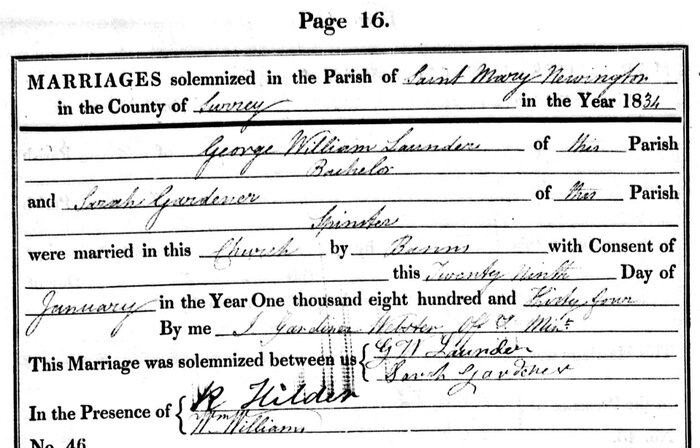 Page 16.
MARRIAGES solemnized in the Parish of Saint Mary Newington
in the County of Surrey in the Year 1834
George William Launder of this Parish
Bachelor
and Sarah Gardener of this Parish
Spinster
were married in this Church by Banns with Consent of
this Twenty Ninth Day of
January in the Year One thousand eight hundred and Thirty four
By me J Gardiner Webster Off Minr
This Marriage was solemnized between us G W Launder
Sarah Gardener
In the Presence of R Hilder
W Williams
No. 46